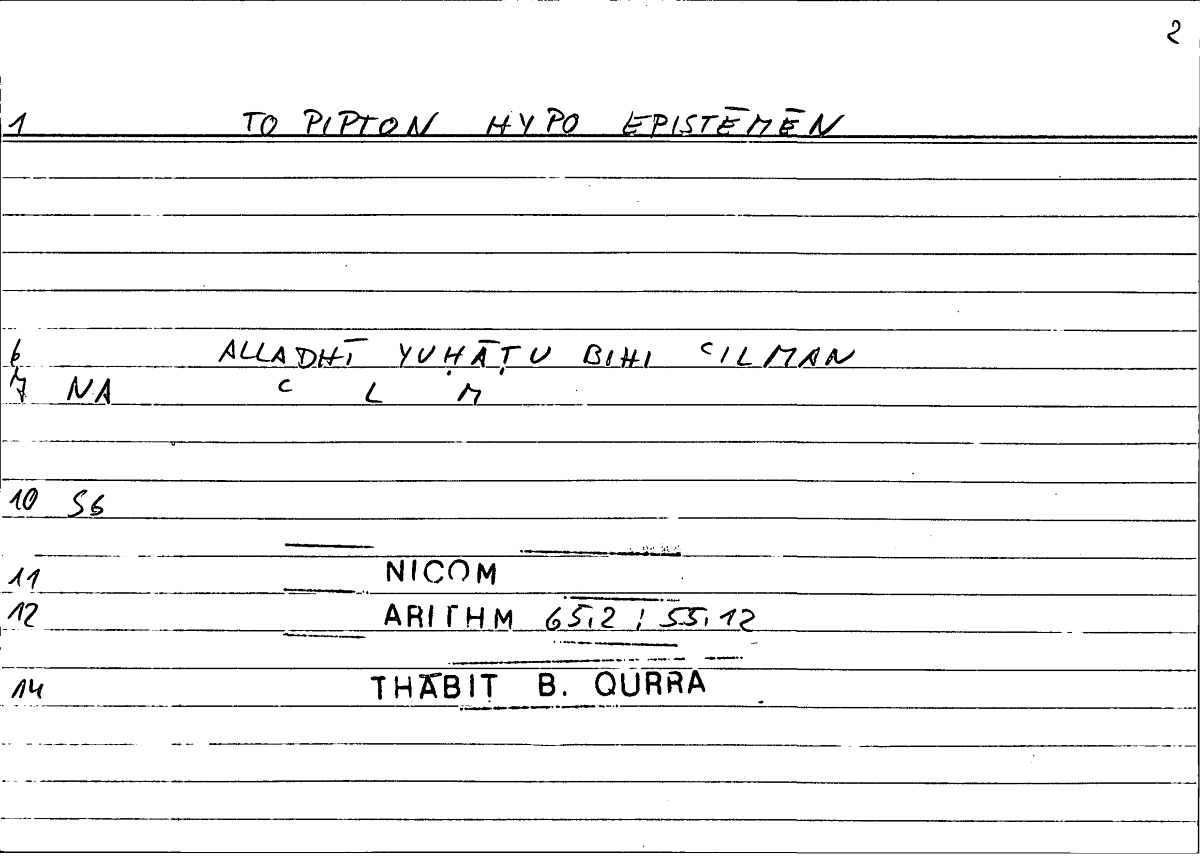 2
1 TO PIPTON HYPO EPISTĒMĒN
6 ALLADHĪ YUḤĀṬU BIHI ᶜILMAN
7 NA ᶜ L M
10 S6
11 NICOM
12 ARITHM 65,2 ; 55,12
14 THĀBIT B. QURRA